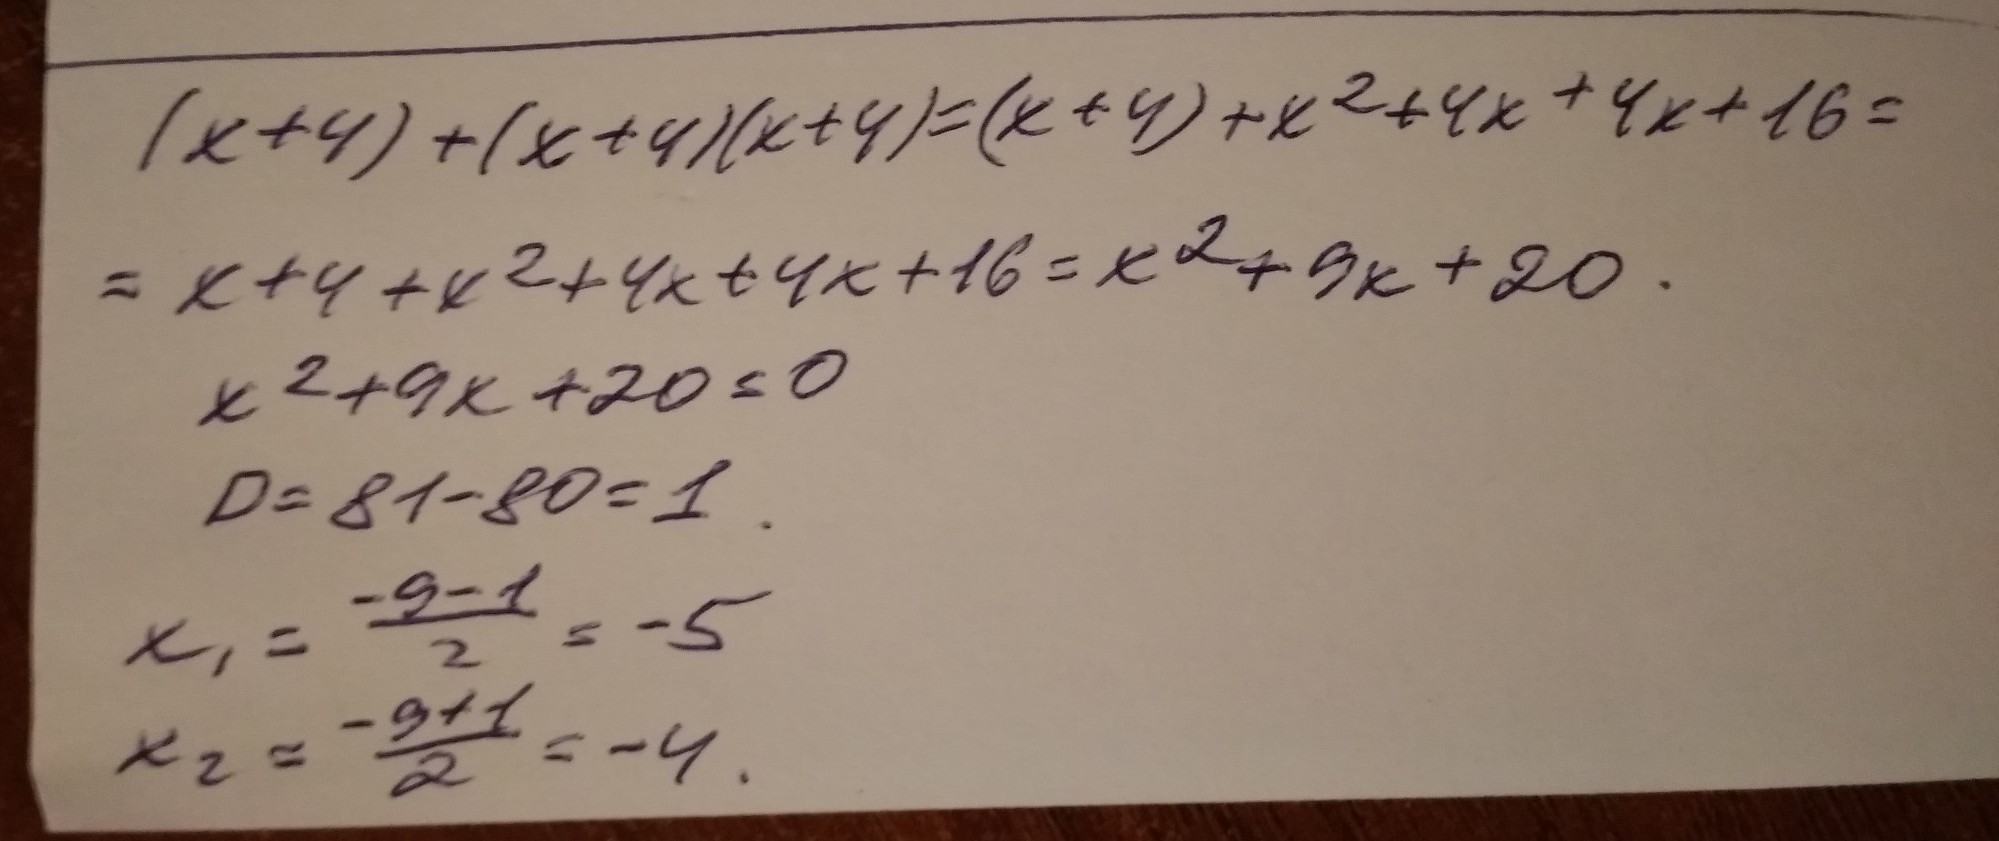 (x+4)+(x+4)(x+4)=(x+4)+x²+4x+4x+16=
=x+4+x²+4x+4x+16=x²+9x+20.
x²+9x+20=0
D=81-80=1.
x₁=(-9-1)/2=-5
x₂=(-9+1)/2=-4.